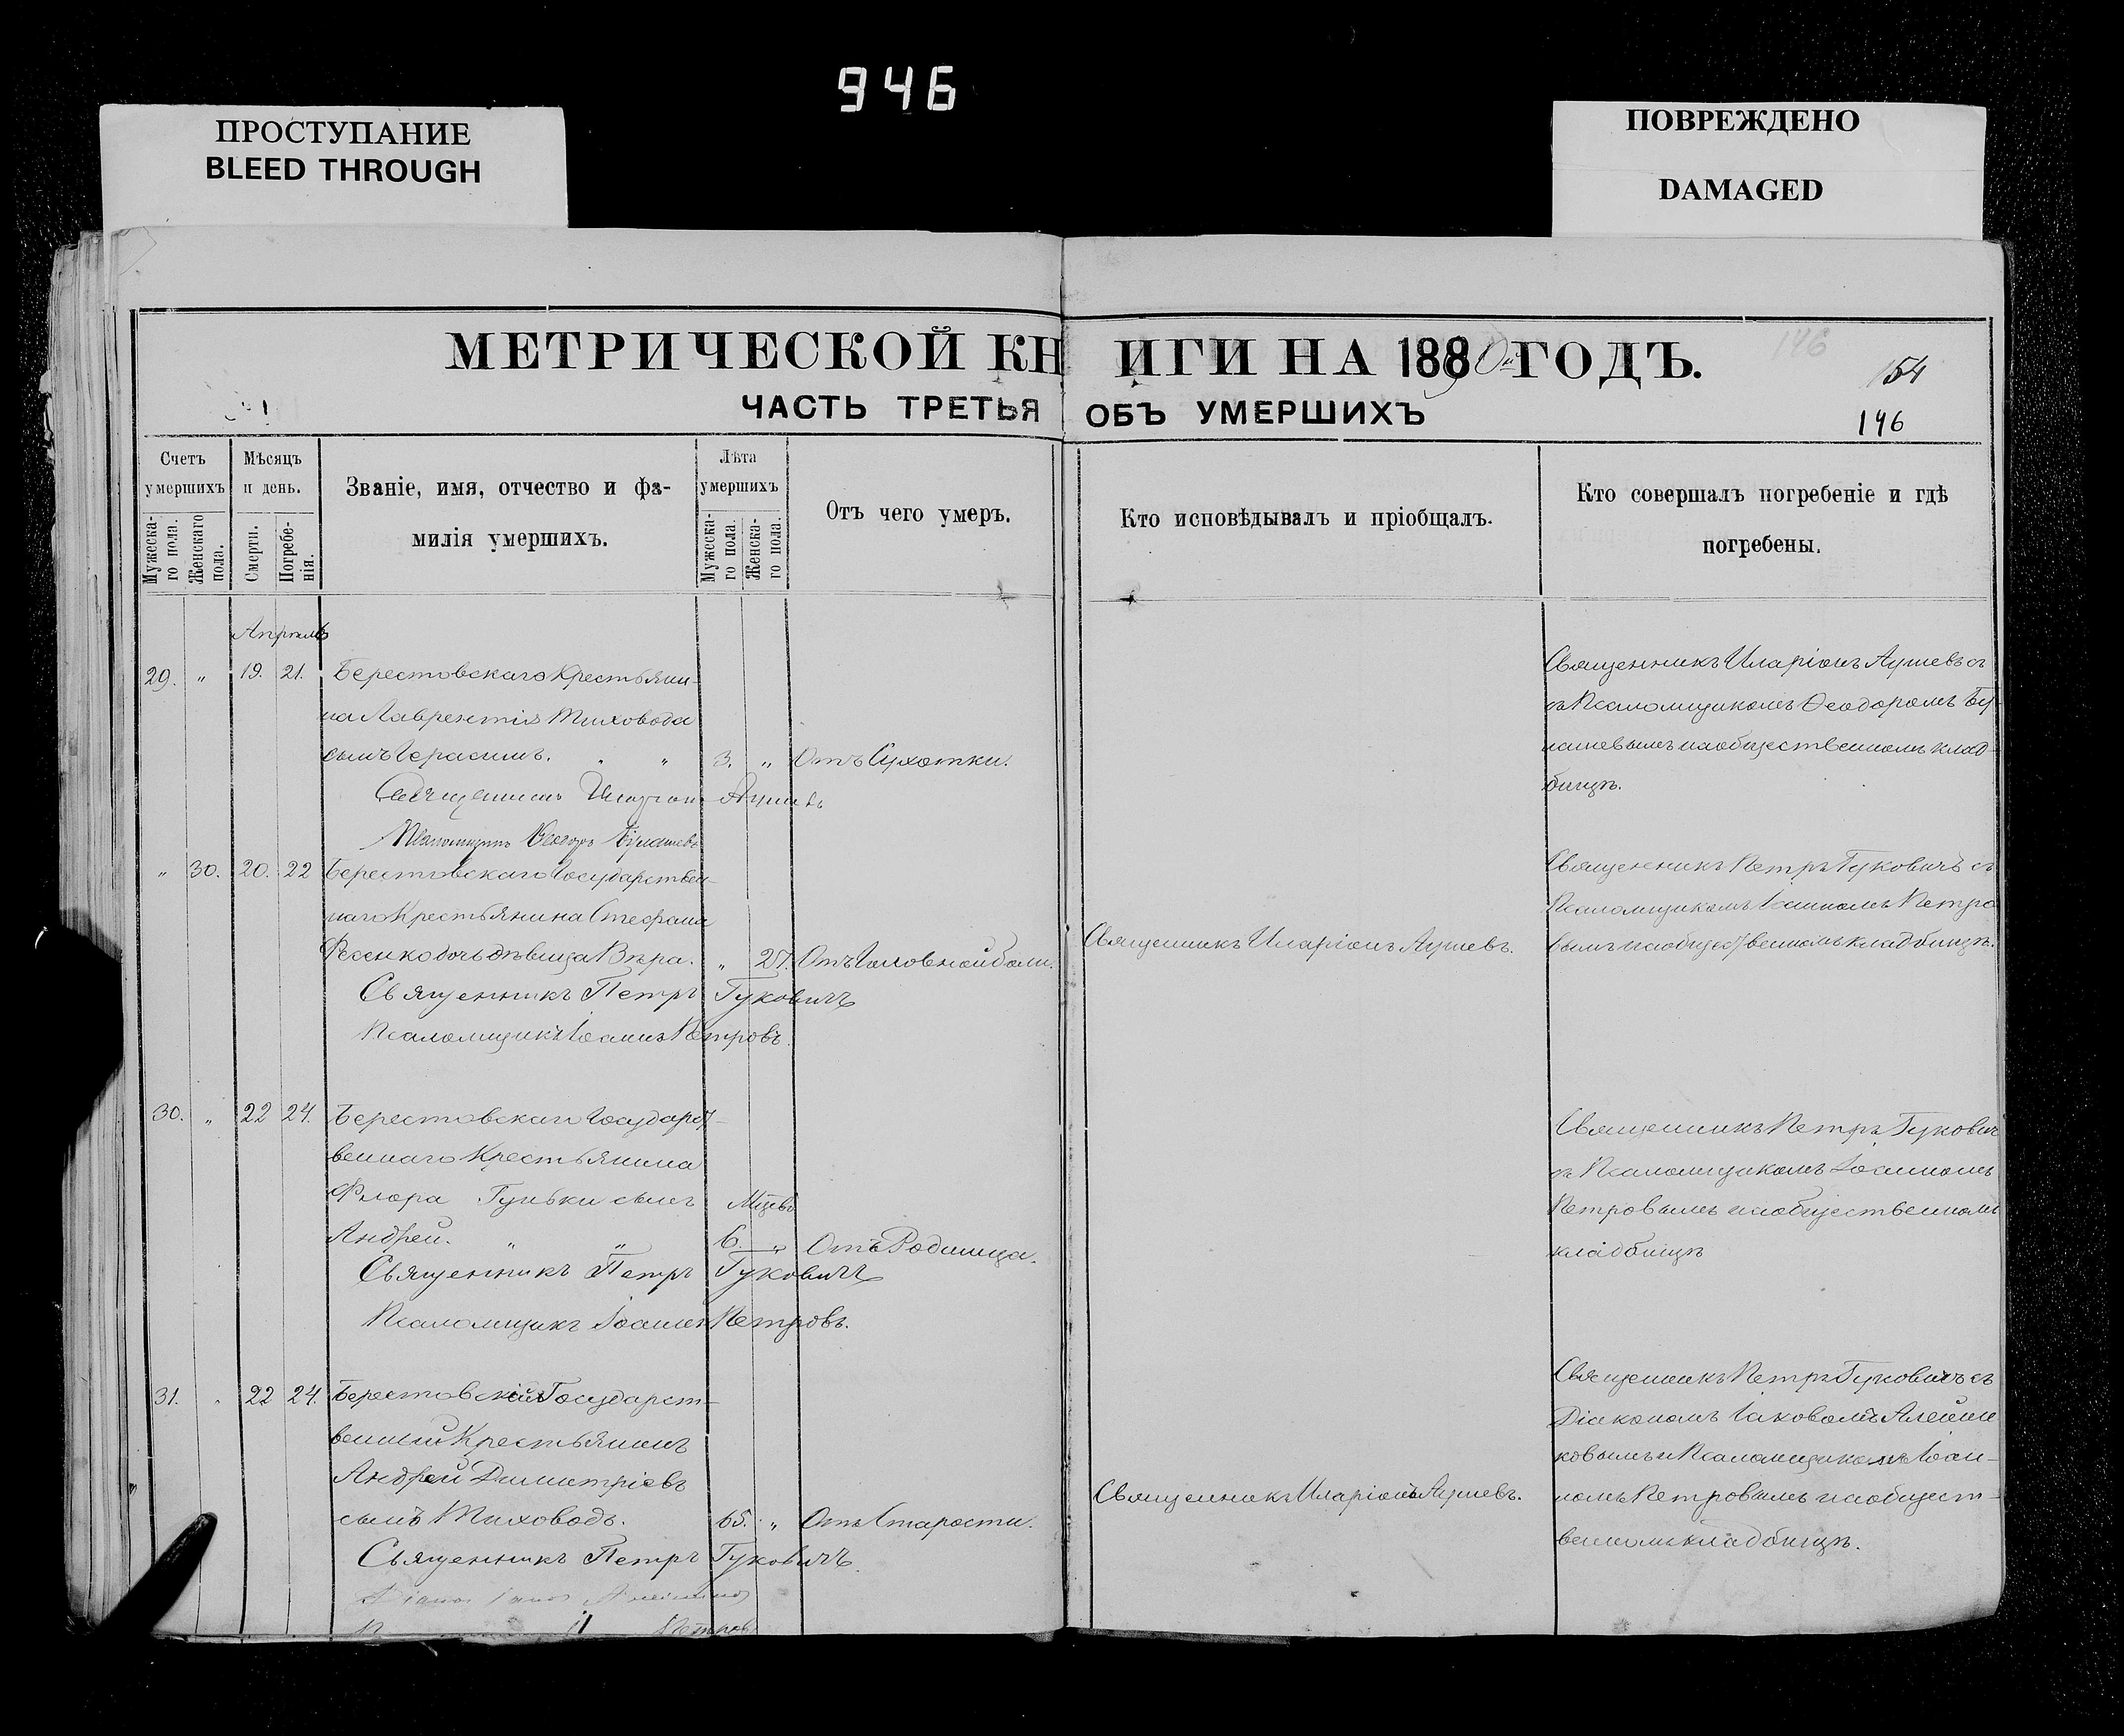 946
ПРОСТУПАНИЕ
BLEED THROUGH
ПОВРЕЖДЕНО
DAMAGED
МЕТРИЧЕСКОЙ КНИГИ НА 1880 ГОДЪ.
146
154
ЧАСТЬ ТРЕТЬЯ ОБЪ УМЕРШИХЪ
146
Счетъ умершихъ
Мужескаго пола.
Женскаго пола.
Мѣсяцъ и день.
Смерти.
Погребенія.
Званіе, имя, отчество и фа-
милія умершихъ.
Лѣта умершихъ
Мужескаго пола.
Женскаго пола.
Отъ чего умеръ.
Кто исповѣдывалъ и пріобщалъ.
Кто совершалъ погребеніе и гдѣ
погребены.
Апрѣль
29. „ 19. 21. Берестовскаго Крестьяни-
на Лаврентія Тиховода
сынъ Герасимъ. „ „ 3. „ Отъ Сухотки.
Священникъ Иларіонъ Аушевъ
Псаломщикъ Ѳеодоръ
Священникъ Иларіонъ Аушевъ
съ Псаломщикомъ Ѳеодоромъ Бу-
лашевымъ на общественномъ клад-
бищѣ.
„ 30. 20. 22 Берестовскаго Государствен-
наго Крестьянина Стефана
Фесенко дочь дѣвица Вѣра. „ 27. Отъ Головной боли.
Священникъ Петръ Гуковичъ
Псаломщикъ Іоаннъ Петровъ.
Священникъ Иларіонъ Аушевъ.
Священникъ Петръ Гуковичъ съ
Псаломщикомъ Іоанномъ Петро
вымъ на общественномъ кладбищѣ.
30. „ 22 24. Берестовскаго Государст-
веннаго Крестьянина
Флора Гуньки сынъ Мѣсцевъ
Андрей. „ „ 6. „ Отъ Родимца.
Священникъ Петръ Гуковичъ
Псаломщикъ Іоаннъ Петровъ.
Священникъ Петръ Гукович
съ Псаломщикомъ Іоанномъ
Петровымъ на общественномъ
кладбищѣ
31. „ 22 24. Берестовскій Государст-
венный Крестьянинъ
Андрей Димитріевъ
сынъ Тиховодъ. 65. „ Отъ Старости.
Священникъ Петръ Гуковичъ.
Петров
Священникъ Иларіонъ Аушевъ.
Священникъ Петръ Гуковичъ съ
Діакономъ Іаковомъ Алейни
ковымъ и Псаломщикомъ Іоан-
номъ Петровымъ на общест-
венномъ кладбищѣ.